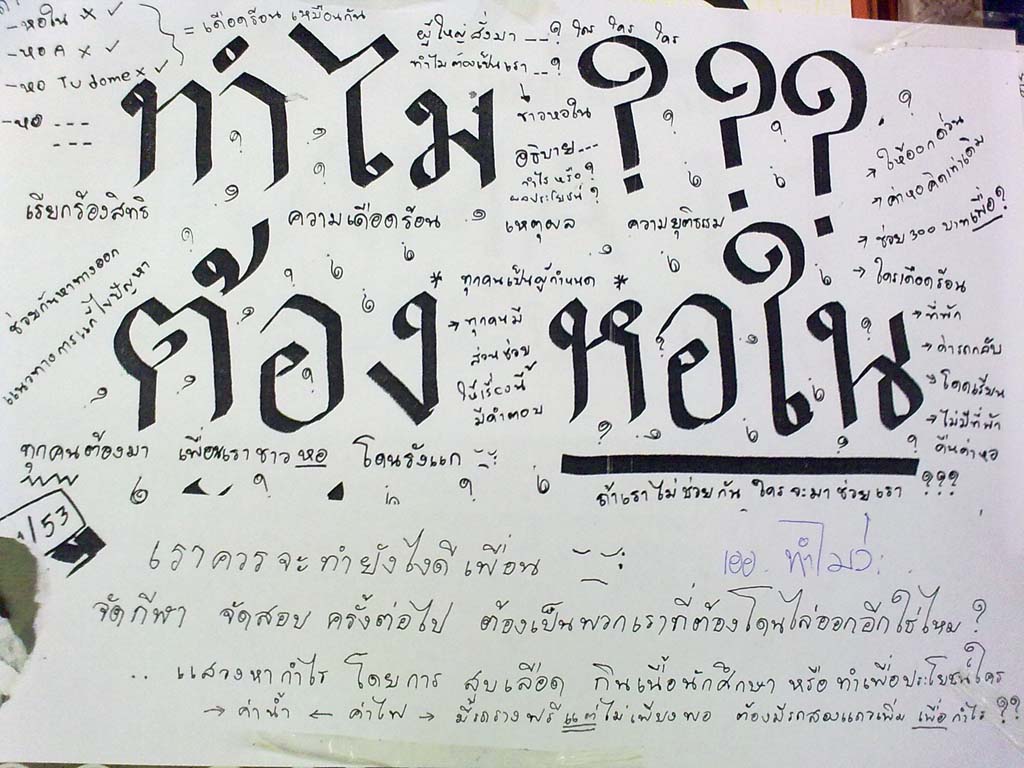 -หอใน X ✓
-หอ A X ✓
-หอ Tu dome X ✓
-หอ ---
---
= เดือดร้อน เหมือนกัน
ผู้ใหญ่สั่งมา --? ใคร ใคร ใคร
ทำไมต้องเป็นเรา --?
ทำไม???
ชาวหอใน
อธิบาย---
กำไร หรือ ?
ผลประโยชน์ ?
→ ให้ออกด่วน
→ ค่าหอคิดเท่าเดิม
→ ช่วย 300 บาทเพื่อ?
→ ใครเดือดร้อน
→ ที่พัก
→ ค่ารถกลับ
→ โดดเรียน
→ ไม่มีที่พัก
คืนค่าหอ
???
เรียกร้องสิทธิ
ความเดือดร้อน
เหตุผล
ความยุติธรรม
ช่วยกันหาทางออก
แนวทางการแก้ไขปัญหา
* ทุกคนเป็นผู้กำหนด *
ต้อง หอใน
→ ทุกคนมี
ส่วนช่วย
ให้เรื่องนี้
มีคำตอบ
ทุกคนต้องมา เพื่อนเราชาวหอ โดนรังแก
ถ้าเราไม่ช่วยกัน ใครจะมาช่วยเรา
/53
เราควรจะทำยังไงดีเพื่อน
เออ ทำไมว่ะ
จัดกีฬา จัดสอบ ครั้งต่อไป ต้องเป็นพวกเราที่ต้องโดนไล่ออกอีกใช่ไหม ?
.. แสวงหากำไร โดยการ สูบเลือด กินเนื้อนักศึกษา หรือ ทำเพื่อประโยชน์ใคร
→ ค่าน้ำ ← ค่าไฟ → มีรถรางฟรี แต่ไม่เพียงพอ ต้องมีรถสองแถวเพิ่ม เพื่อกำไร ??